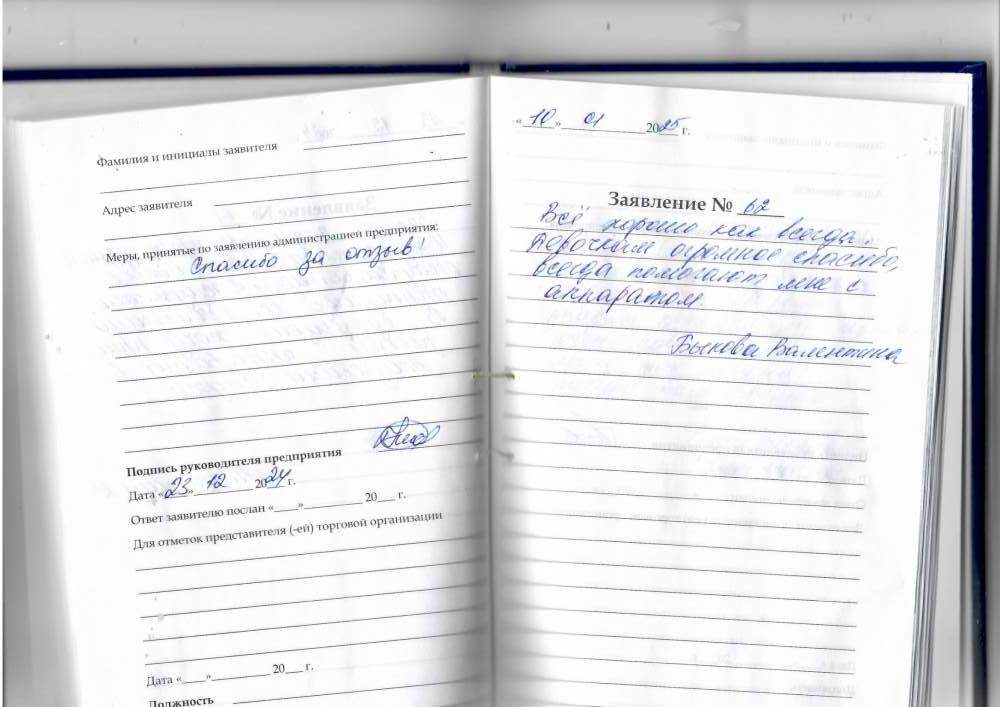 Фамилия и инициалы заявителя
Адрес заявителя
Меры, принятые по заявлению администрацией предприятия:
Спасибо за отзыв!
Подпись руководителя предприятия
Дата «23» 12 2024 г.
Ответ заявителю послан «___»__________ 20___ г.
Для отметок представителя (-ей) торговой организации
Дата «___»__________ 20___ г.
Должность
«10» 01 2025 г.
Заявление № 62
Всё хорошо как всегда.
Девочкам огромное спасибо,
всегда помогают мне с
аппаратом.
Быкова Валентина